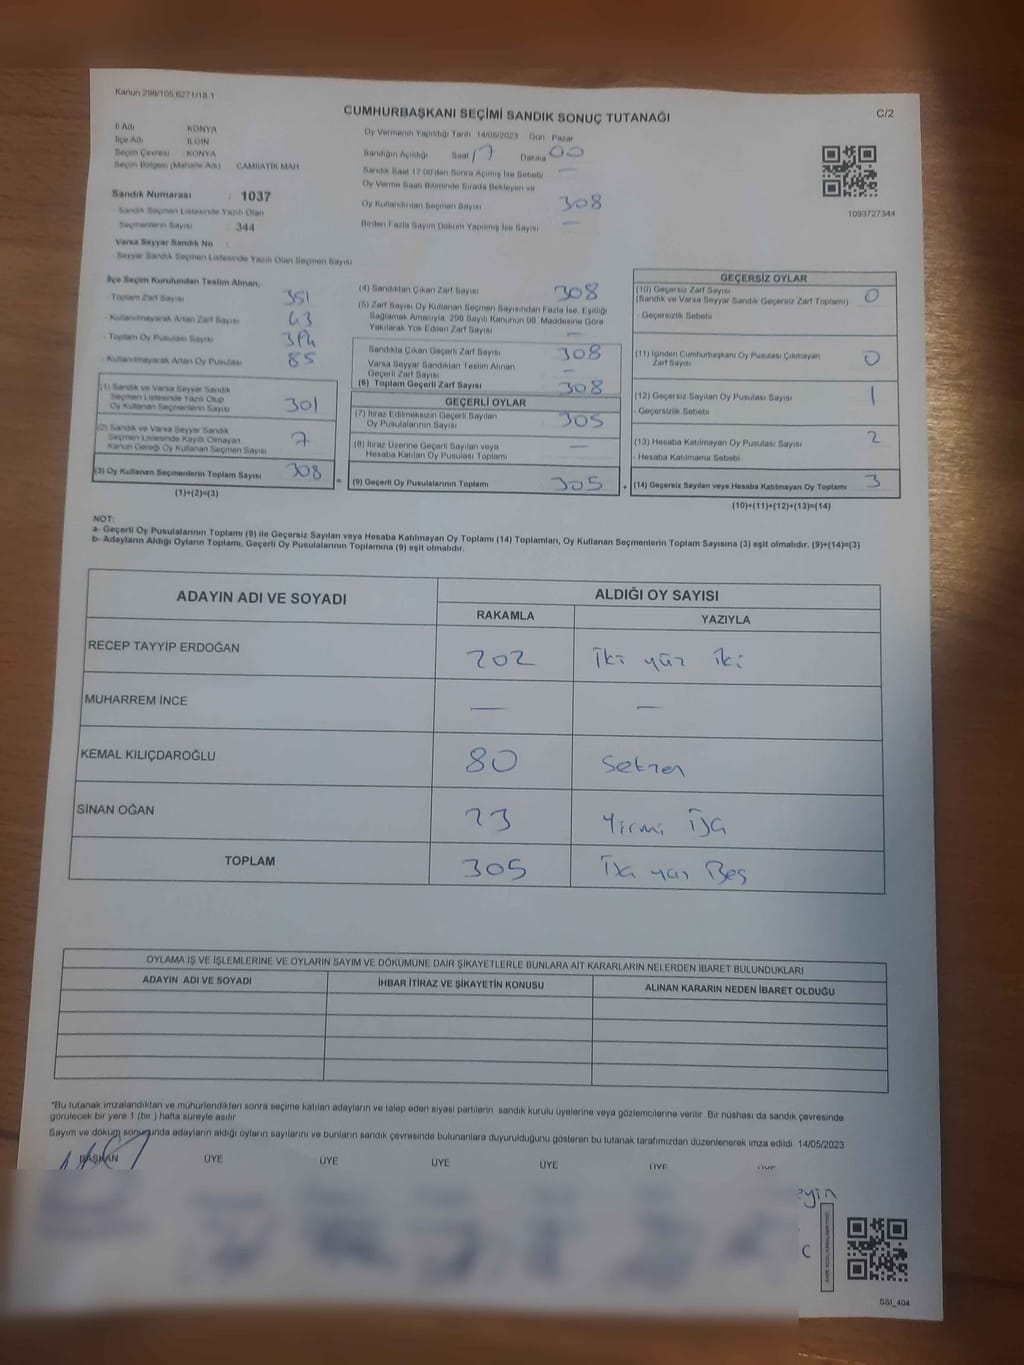 Kanun 298/105,6271/18-1
CUMHURBAŞKANI SEÇİMİ SANDIK SONUÇ TUTANAĞI
C/2
İl Adı KONYA
İlçe Adı ILGIN
Seçim Çevresi : KONYA
Seçim Bölgesi (Mahalle Adı) CAMİİATİK MAH
Sandık Numarası : 1037
- Sandık Seçmen Listesinde Yazılı Olan
Seçmenlerin Sayısı : 344
Varsa Seyyar Sandık No :
- Seyyar Sandık Seçmen Listesinde Yazılı Olan Seçmen Sayısı
Oy Vermenin Yapıldığı Tarih 14/05/2023 Gün Pazar
Sandığın Açıldığı Saat 17 Dakika 00
Sandık Saat 17:00'den Sonra Açılmış İse Sebebi —
Oy Verme Saati Bitiminde Sırada Bekleyen ve
Oy Kullandırılan Seçmen Sayısı 308
Birden Fazla Sayım Döküm Yapılmış İse Sayısı —
1093727344
İlçe Seçim Kurulundan Teslim Alınan;
- Toplam Zarf Sayısı 351
- Kullanılmayarak Artan Zarf Sayısı 43
- Toplam Oy Pusulası Sayısı
- Kullanılmayarak Artan Oy Pusulası 85
(1) Sandık ve Varsa Seyyar Sandık
Seçmen Listesinde Yazılı Olup
Oy Kullanan Seçmenlerin Sayısı 301
(2) Sandık ve Varsa Seyyar Sandık
Seçmen Listesinde Kayıtlı Olmayan
Kanun Gereği Oy Kullanan Seçmen Sayısı 7
(3) Oy Kullanan Seçmenlerin Toplam Sayısı 308
(1)+(2)=(3)
=
(4) Sandıktan Çıkan Zarf Sayısı 308
(5) Zarf Sayısı Oy Kullanan Seçmen Sayısından Fazla İse, Eşitliği
Sağlamak Amacıyla, 298 Sayılı Kanunun 98. Maddesine Göre
Yakılarak Yok Edilen Zarf Sayısı —
Sandıkta Çıkan Geçerli Zarf Sayısı 308
Varsa Seyyar Sandıktan Teslim Alınan
Geçerli Zarf Sayısı —
(6) Toplam Geçerli Zarf Sayısı 308
GEÇERLİ OYLAR
(7) İtiraz Edilmeksizin Geçerli Sayılan
Oy Pusulalarının Sayısı 305
(8) İtiraz Üzerine Geçerli Sayılan veya
Hesaba Katılan Oy Pusulası Toplamı —
(9) Geçerli Oy Pusulalarının Toplamı 305
+
GEÇERSİZ OYLAR
(10) Geçersiz Zarf Sayısı 0
(Sandık ve Varsa Seyyar Sandık Geçersiz Zarf Toplamı)
- Geçersizlik Sebebi
(11) İçinden Cumhurbaşkanı Oy Pusulası Çıkmayan
Zarf Sayısı 0
(12) Geçersiz Sayılan Oy Pusulası Sayısı 1
- Geçersizlik Sebebi
(13) Hesaba Katılmayan Oy Pusulası Sayısı 2
- Hesaba Katılmama Sebebi
(14) Geçersiz Sayılan veya Hesaba Katılmayan Oy Toplamı 3
(10)+(11)+(12)+(13)=(14)
NOT:
a- Geçerli Oy Pusulalarının Toplamı (9) ile Geçersiz Sayılan veya Hesaba Katılmayan Oy Toplamı (14) Toplamları, Oy Kullanan Seçmenlerin Toplam Sayısına (3) eşit olmalıdır. (9)+(14)=(3)
b- Adayların Aldığı Oyların Toplamı, Geçerli Oy Pusulalarının Toplamına (9) eşit olmalıdır.
ADAYIN ADI VE SOYADI
ALDIĞI OY SAYISI
RAKAMLA YAZIYLA
RECEP TAYYİP ERDOĞAN 202 İki yüz iki
MUHARREM İNCE — —
KEMAL KILIÇDAROĞLU 80 Seksen
SİNAN OĞAN 23 Yirmi Üç
TOPLAM 305 Üç yüz Beş
OYLAMA İŞ VE İŞLEMLERİNE VE OYLARIN SAYIM VE DÖKÜMÜNE DAİR ŞİKAYETLERLE BUNLARA AİT KARARLARIN NELERDEN İBARET BULUNDUKLARI
ADAYIN ADI VE SOYADI İHBAR İTİRAZ VE ŞİKAYETİN KONUSU ALINAN KARARIN NEDEN İBARET OLDUĞU
*Bu tutanak imzalandıktan ve mühürlendikten sonra seçime katılan adayların ve talep eden siyasi partilerin sandık kurulu üyelerine veya gözlemcilerine verilir. Bir nüshası da sandık çevresinde
görülecek bir yere 1 (bir) hafta süreyle asılır.
Sayım ve döküm sonucunda adayların aldığı oyların sayılarını ve bunların sandık çevresinde bulunanlara duyurulduğunu gösteren bu tutanak tarafımızdan düzenlenerek imza edildi 14/05/2023
BAŞKAN ÜYE ÜYE ÜYE ÜYE ÜYE ÜYE
SSI_404